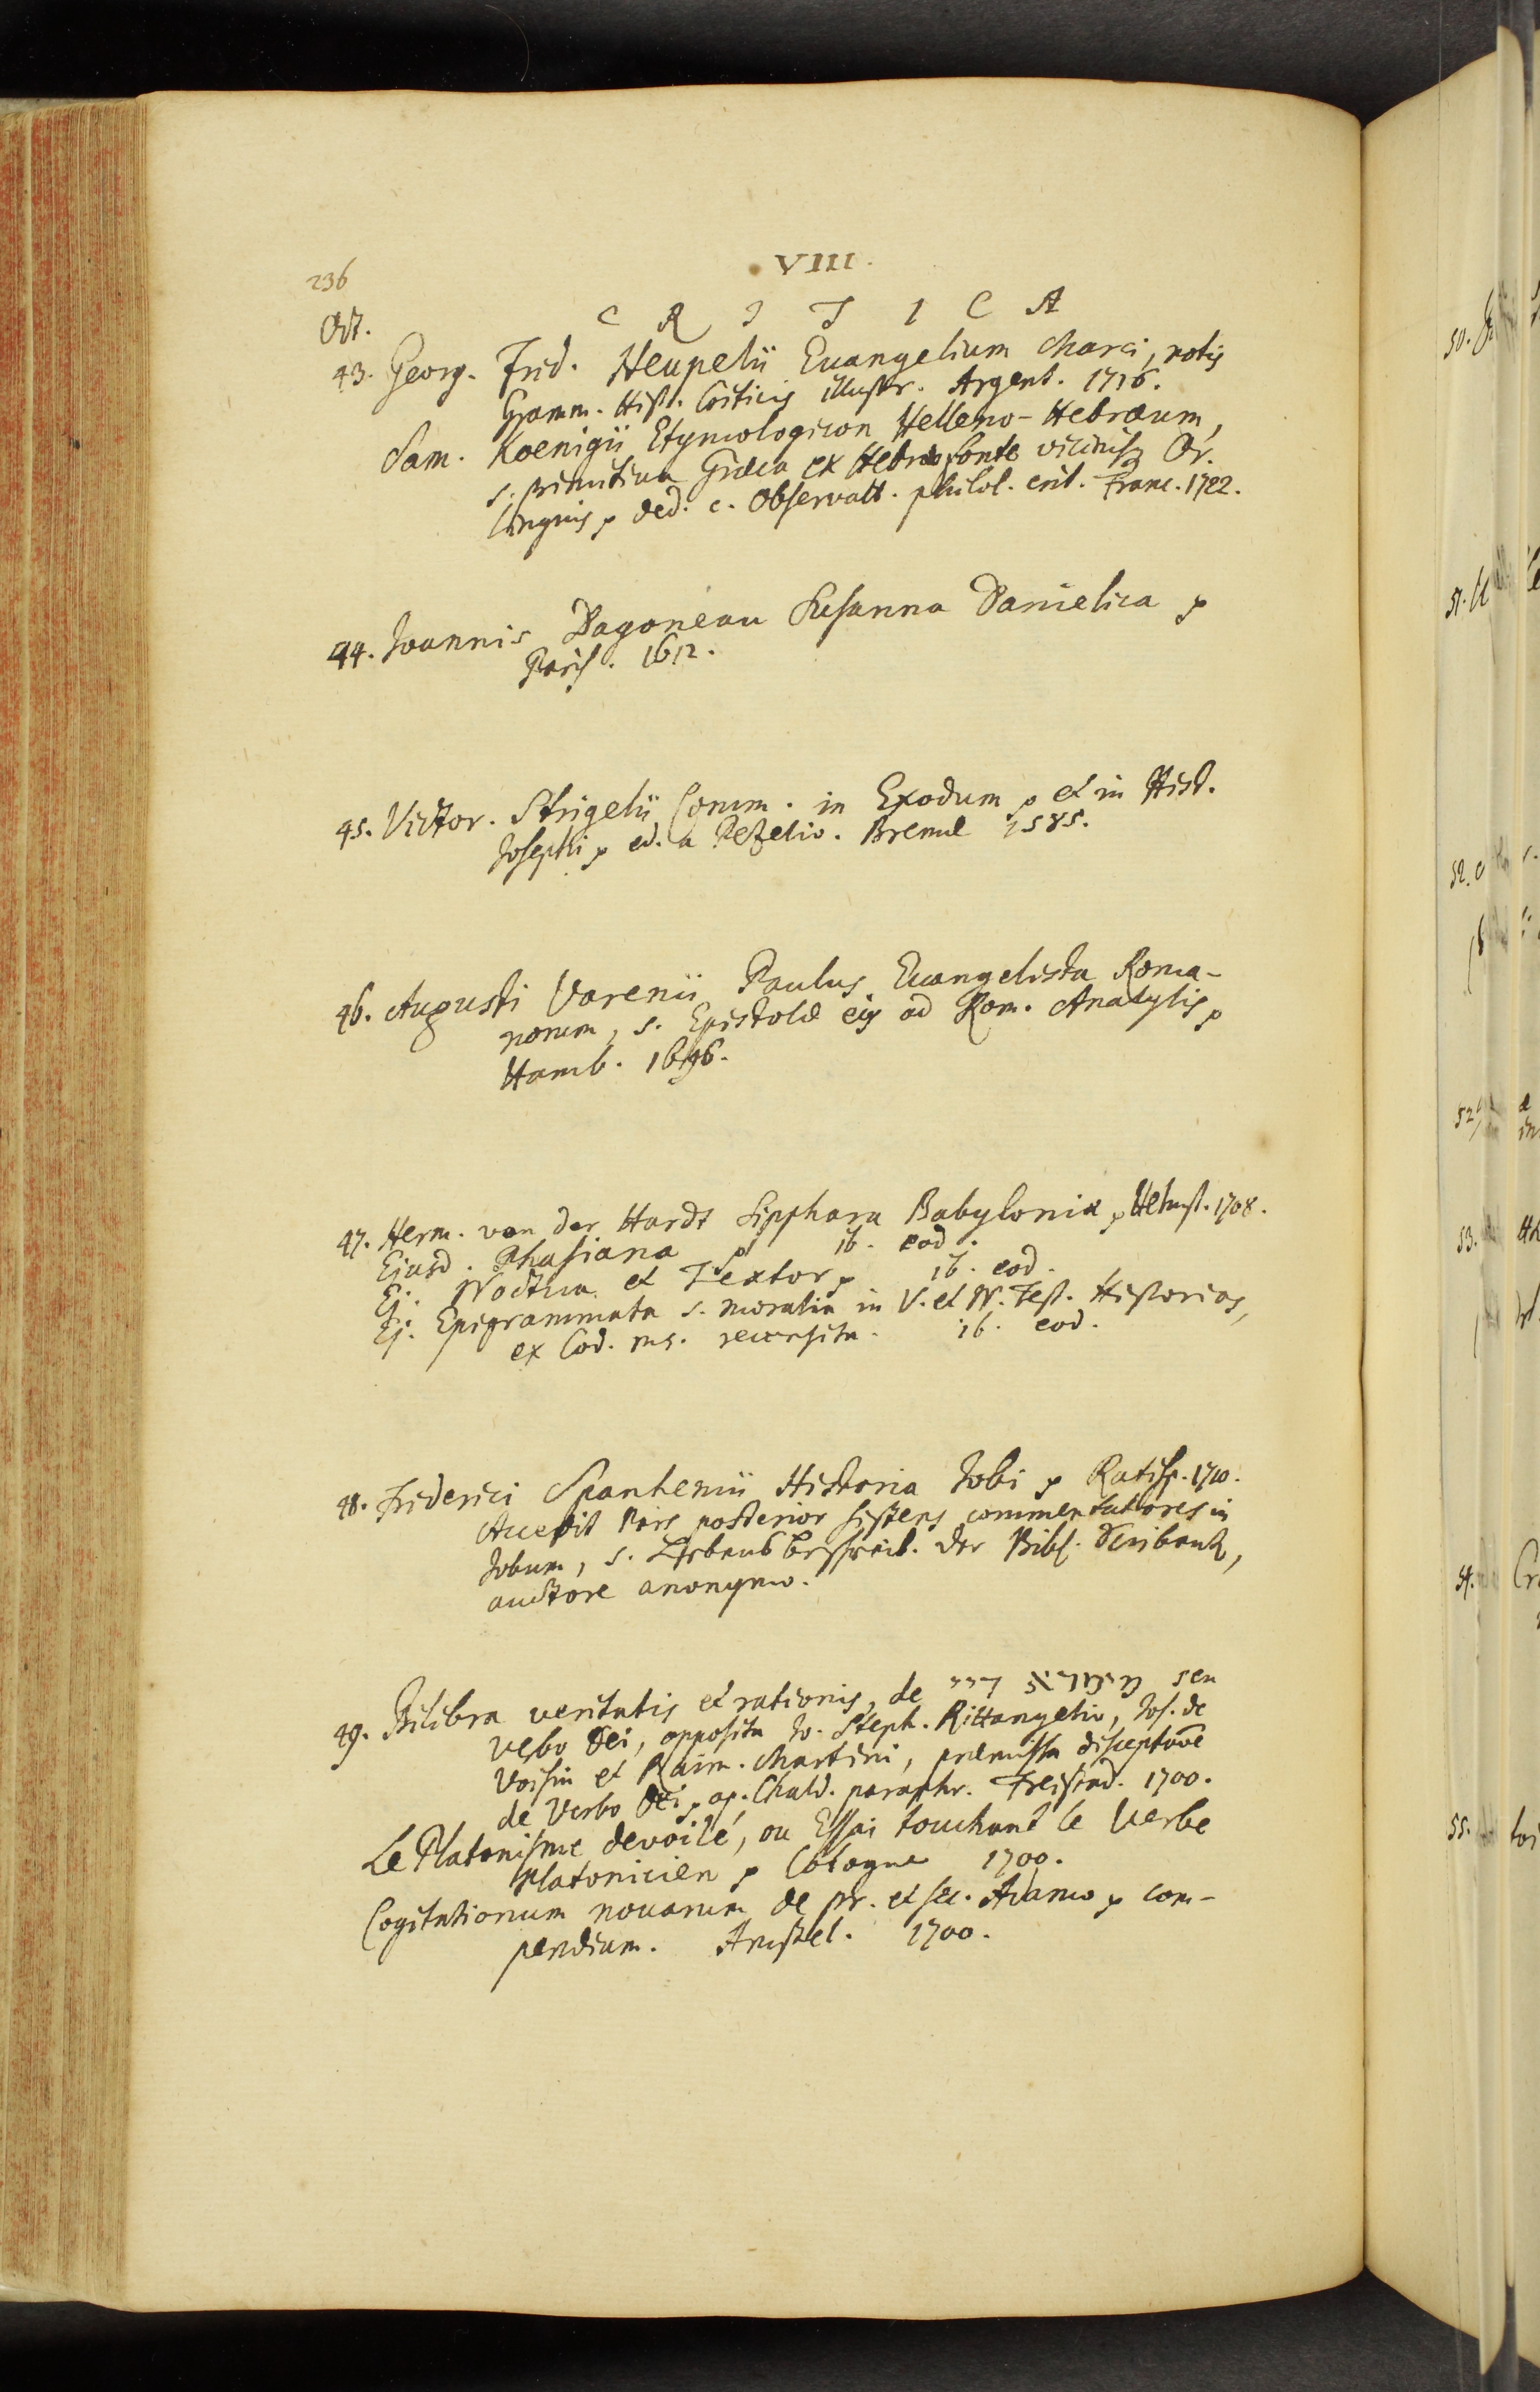 236
VIII.
Oct.
C R I T I C A
43. Georg. Frid. Heupelii Euangelium Marci, notis
Gramm. Hist. Criticis illustr. Argent. 1716.
Sam. Koenigii Etymologicon Helleno-Hebraeum,
s. primitiua Graeca ex Hebraeo fonte vicinisq Or.
linguis p ded. c. Obseruatt. philol. crit. Franc. 1722.
44. Joannis Dagoneau Susanna Danielica p
Paris. 1612.
45. Victor. Strigelii Comm. in Exodum p et in Hist.
Josephi p ed. a Pezelio. Bremae 1585.
46. Augusti Varenii Paulus Euangelista Roma-
norum, s. Epistolae eius ad Rom. Analysis p
Hamb. 1696.
47. Herm. von der Hardt Sipphara Babyloniae p Helmst. 1708.
Ejusd. Phasiana p ib. eod.
Ej. Noctua et Textor p ib. eod.
Ej. Epigrammata s. moralia in V. et N. Test. Historias,
ex Cod. ms. recensita. ib. eod.
48. Friderici Spanhemii Historia Jobi p Ratisp. 1710.
Accessit Pars posterior sistens commentatores in
Jobum, s. der Bibl.
auctore anonymo.
49. Bilibra veritatis et rationis, de מימרא דיי seu
verbo Dei, opposita Jo. Steph. Rittangelio, Jos. de
Voisin et Raim. Martini, praemissa disceptaõe
de Verbo Dei p ap. Chald. paraphr. Freistad. 1700.
Le Platonisme devoilé, ou Essai touchant le Verbe
Platonicien p Cologne 1700.
Cogitationum nouarum de pr. et sec. Adamo p com-
pendium. Amstel. 1700.
50.
51.
52.
53.
54.
55.